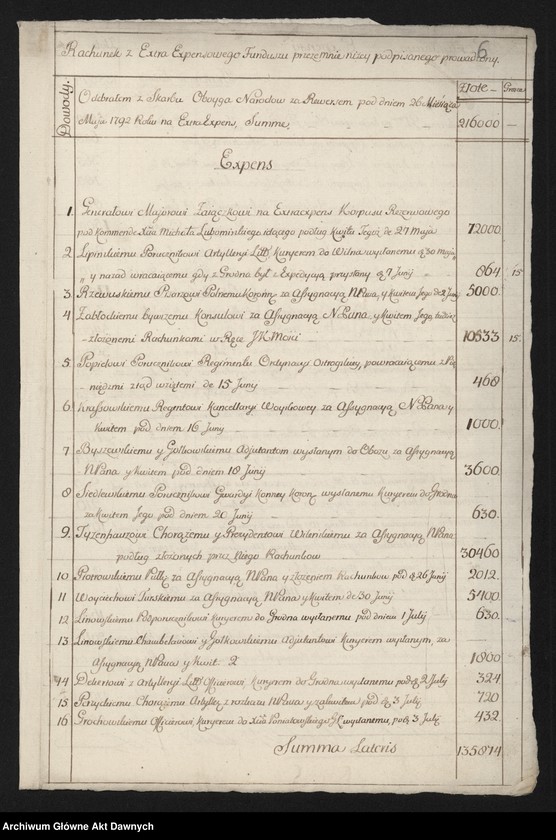 6
Rachunek z Extra Expensowego Funduszu przezemnie niżey podpisanego prowadzony.
Dowody.
Złote
Grosze
Odebrałem z Skarbu Oboyga Narodow za Rewersem pod dniem 26 Miesiąca
Maja 1792 Roku na Extra Expens, Summe, 216000
Expens
1. Generałowi Majorowi Zaiączkowi na Extraexpens Korpusu Rezerwowego
pod Kommendę Xcia Michała Lubomirskiego idącego podług kwitu Jegoż de 27 Maja 72000
2 Lipińskiemu Porucznikowi Artylleryi Litt: Kuryerem do Wilna wysłanemu d: 30 Maja
y nazad wracaiącemu gdy z Grodna był z Expedycyą przysłany d: 7 Junij 864 15
3 Rzewuskiemu Pisarzowi Polnemu Koron: za Assygnacyą NPana, y kwitem Jego de 2 Junij 5000
4 Zabłockiemu bywszemu Konsulowi za Assygnacyą NPana y kwitem Jego, tudzież
złożonemi Rachunkami w Ręce JK Mości 10533 15.
5. Popielowi Porucznikowi Regimentu Ordynacyi Ostrogskiey, powracaiącemu z
niędzmi ztąd wziętemi de 15 Juny 468
6. Krassowskiemu Regentowi Kancellaryi Woyskowey za Assygnacyą NPana y
kwitem pod dniem 16 Junij 1000.
7. Byszewskiemu y Gołkowskiemu Adjutantom wysłanym do Obozu za Assygnacyą
NPana y kwitem pod dniem 18 Junij 3600.
8 Siedlewskiemu Porucznikowi Gwardyi Konney Koron: wysłanemu Kuryerem do Grodna
za kwitem Jego pod dniem 20 Junij 630.
9. Tyzenhauzowi Chorążemu y Prezydentowi Wileńskiemu za Assygnacyą NPana
podług złożonych przez Niego Rachunkow 30460
10 Piotrowskiemu Pułk: za Assygnacyą NPana y złożeniem Rachunkow pod d: 26 Junij 2012.
11 Woyciechowi Turskiemu za Assygnacyą NPana y kwitem de 30 Junij 5400.
12 Linowskiemu Podporucznikowi Kuryerem do Grodna wysłanemu pod dniem 1 Julij 630.
13 Linowskiemu Chambelanowi y Gołkowskiemu Adjutantowi Kuryerem wysłanym, za
Assygnacyą NPana y kwit. 2 1800
14 Dekertowi z Artylleryi Litt: Officerowi, Kuryerem do Grodna wysłanemu pod d: 2 Julij 324
15 Chorążemu Artyller: z rozkazu NPana y za kwitem pod d: 3 Julij 720
16 Grochowskiemu Officerowi, Kuryerem do Xcia Poniatowskiego GL wysłanemu, pod d: 3 Julij 432
Summa Lateris 135874
Archiwum Główne Akt Dawnych